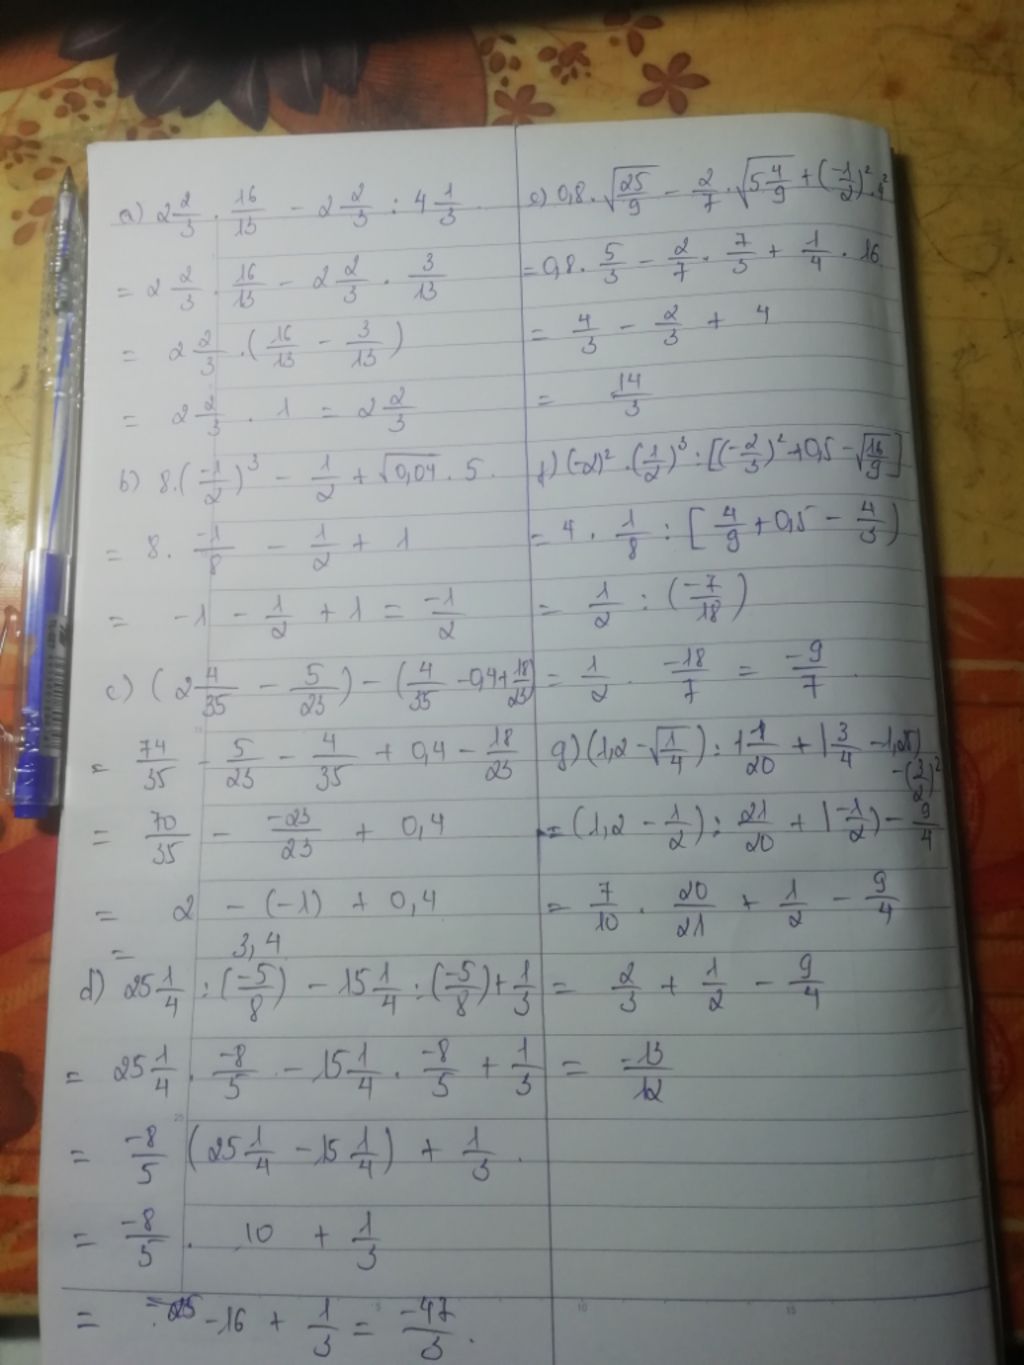 a) 2 2/3 . 16/13 - 2 2/3 : 4 1/3
= 2 2/3 . 16/13 - 2 2/3 . 3/13
= 2 2/3 . (16/13 - 3/13)
= 2 2/3 . 1 = 2 2/3
b) 8.(-1/2)³ - 1/2 + √0,04 . 5
= 8. -1/8 - 1/2 + 1
= -1 - 1/2 + 1 = -1/2
c) (2 4/35 - 5/23) - (4/35 - 0,4 + 18/23)
= 74/35 - 5/23 - 4/35 + 0,4 - 18/23
= 70/35 - -23/23 + 0,4
= 2 - (-1) + 0,4
= 3,4
d) 25 1/4 : (-5/8) - 15 1/4 : (-5/8) + 1/3
= 25 1/4 . -8/5 - 15 1/4 . -8/5 + 1/3
= -8/5 (25 1/4 - 15 1/4) + 1/3.
= -8/5 . 10 + 1/3
= -16 + 1/3 = -47/3.
e) 0,8.√25/9 - 2/7.√5 4/9 + (-1/2)².4²
= 0,8. 5/3 - 2/7. 7/3 + 1/4 . 16
= 4/3 - 2/3 + 4
= 14/3
f) (-2)² .(1/2)³ : [(-2/3)² + 0,5 - √16/9]
= 4 . 1/8 : [4/9 + 0,5 - 4/3)
= 1/2 : (-7/18)
= 1/2 . -18/7 = -9/7.
g) (1,2 - √1/4) : 1 1/20 + |3/4 - 1,25|
-(3/2)²
= (1,2 - 1/2) : 21/20 + |-1/2) - 9/4
= 7/10 . 20/21 + 1/2 - 9/4
= 2/3 + 1/2 - 9/4
= -13/12